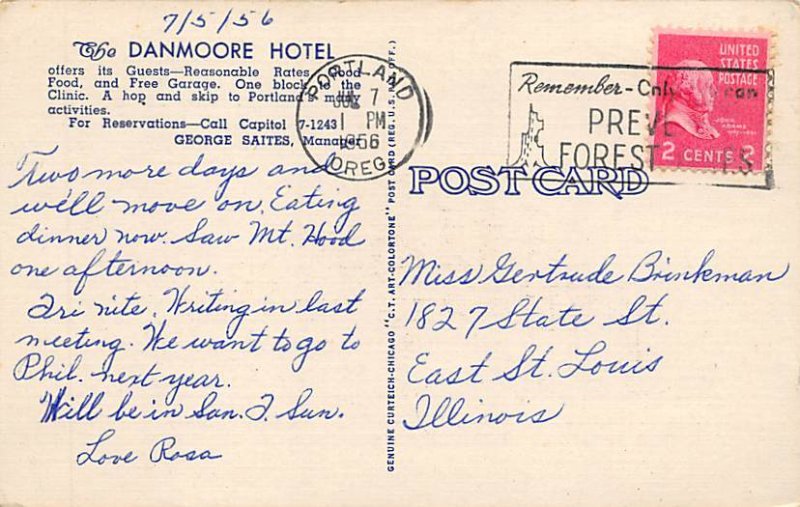 7/5/56
The DANMOORE HOTEL
offers its Guests—Reasonable Rates, Good
Food, and Free Garage. One block to the
Clinic. A hop and skip to Portland's many
activities.
For Reservations—Call Capitol 7-1243
GEORGE SAITES, Manager
Two more days and
we'll move on. Eating
dinner now. Saw Mt. Hood
one afternoon.
Fri nite. Writing in last
meeting. We want to go to
Phil. next year.
Will be in San. F. Sun.
Love Rosa
GENUINE CURTEICH-CHICAGO "C.T. ART-COLORTONE" POST CARD (REG. U.S. PAT. OFF.)
PORTLAND
7
1 PM
1956
OREG.
Remember-Only can
PREVE
FOREST S
UNITED
STATES
POSTAGE
JOHN
ADAMS
2 CENTS 2
POST CARD
Miss Gertrude Brinkman
1827 State St.
East St. Louis
Illinois